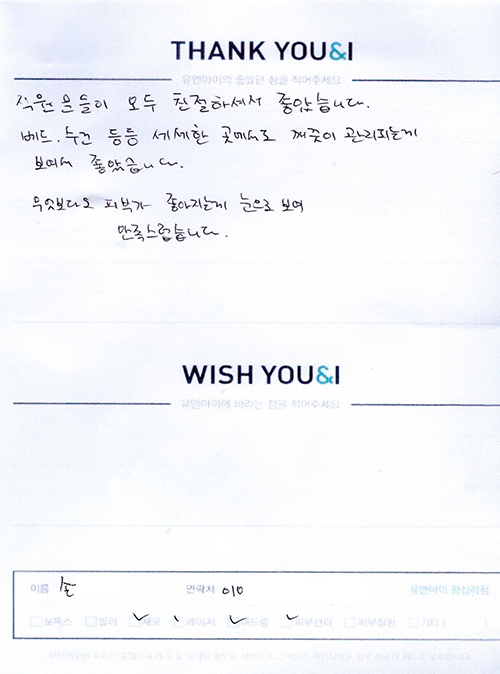 THANK YOU&I
유앤아이의 좋았던 점을 적어주세요
직원 분들이 모두 친절하셔서 좋았습니다.
베드, 수건 등등 세세한 곳에서도 깨끗이 관리되는게
보여서 좋았습니다.
무엇보다도 피부가 좋아지는게 눈으로 보여
만족스럽습니다.
WISH YOU&I
유앤아이에 바라는 점을 적어주세요
이름 손 연락처 010 유앤아이 왕십리점
보톡스 필러 제모 레이저 여드름 피부관리 피부질환 기타 ( )